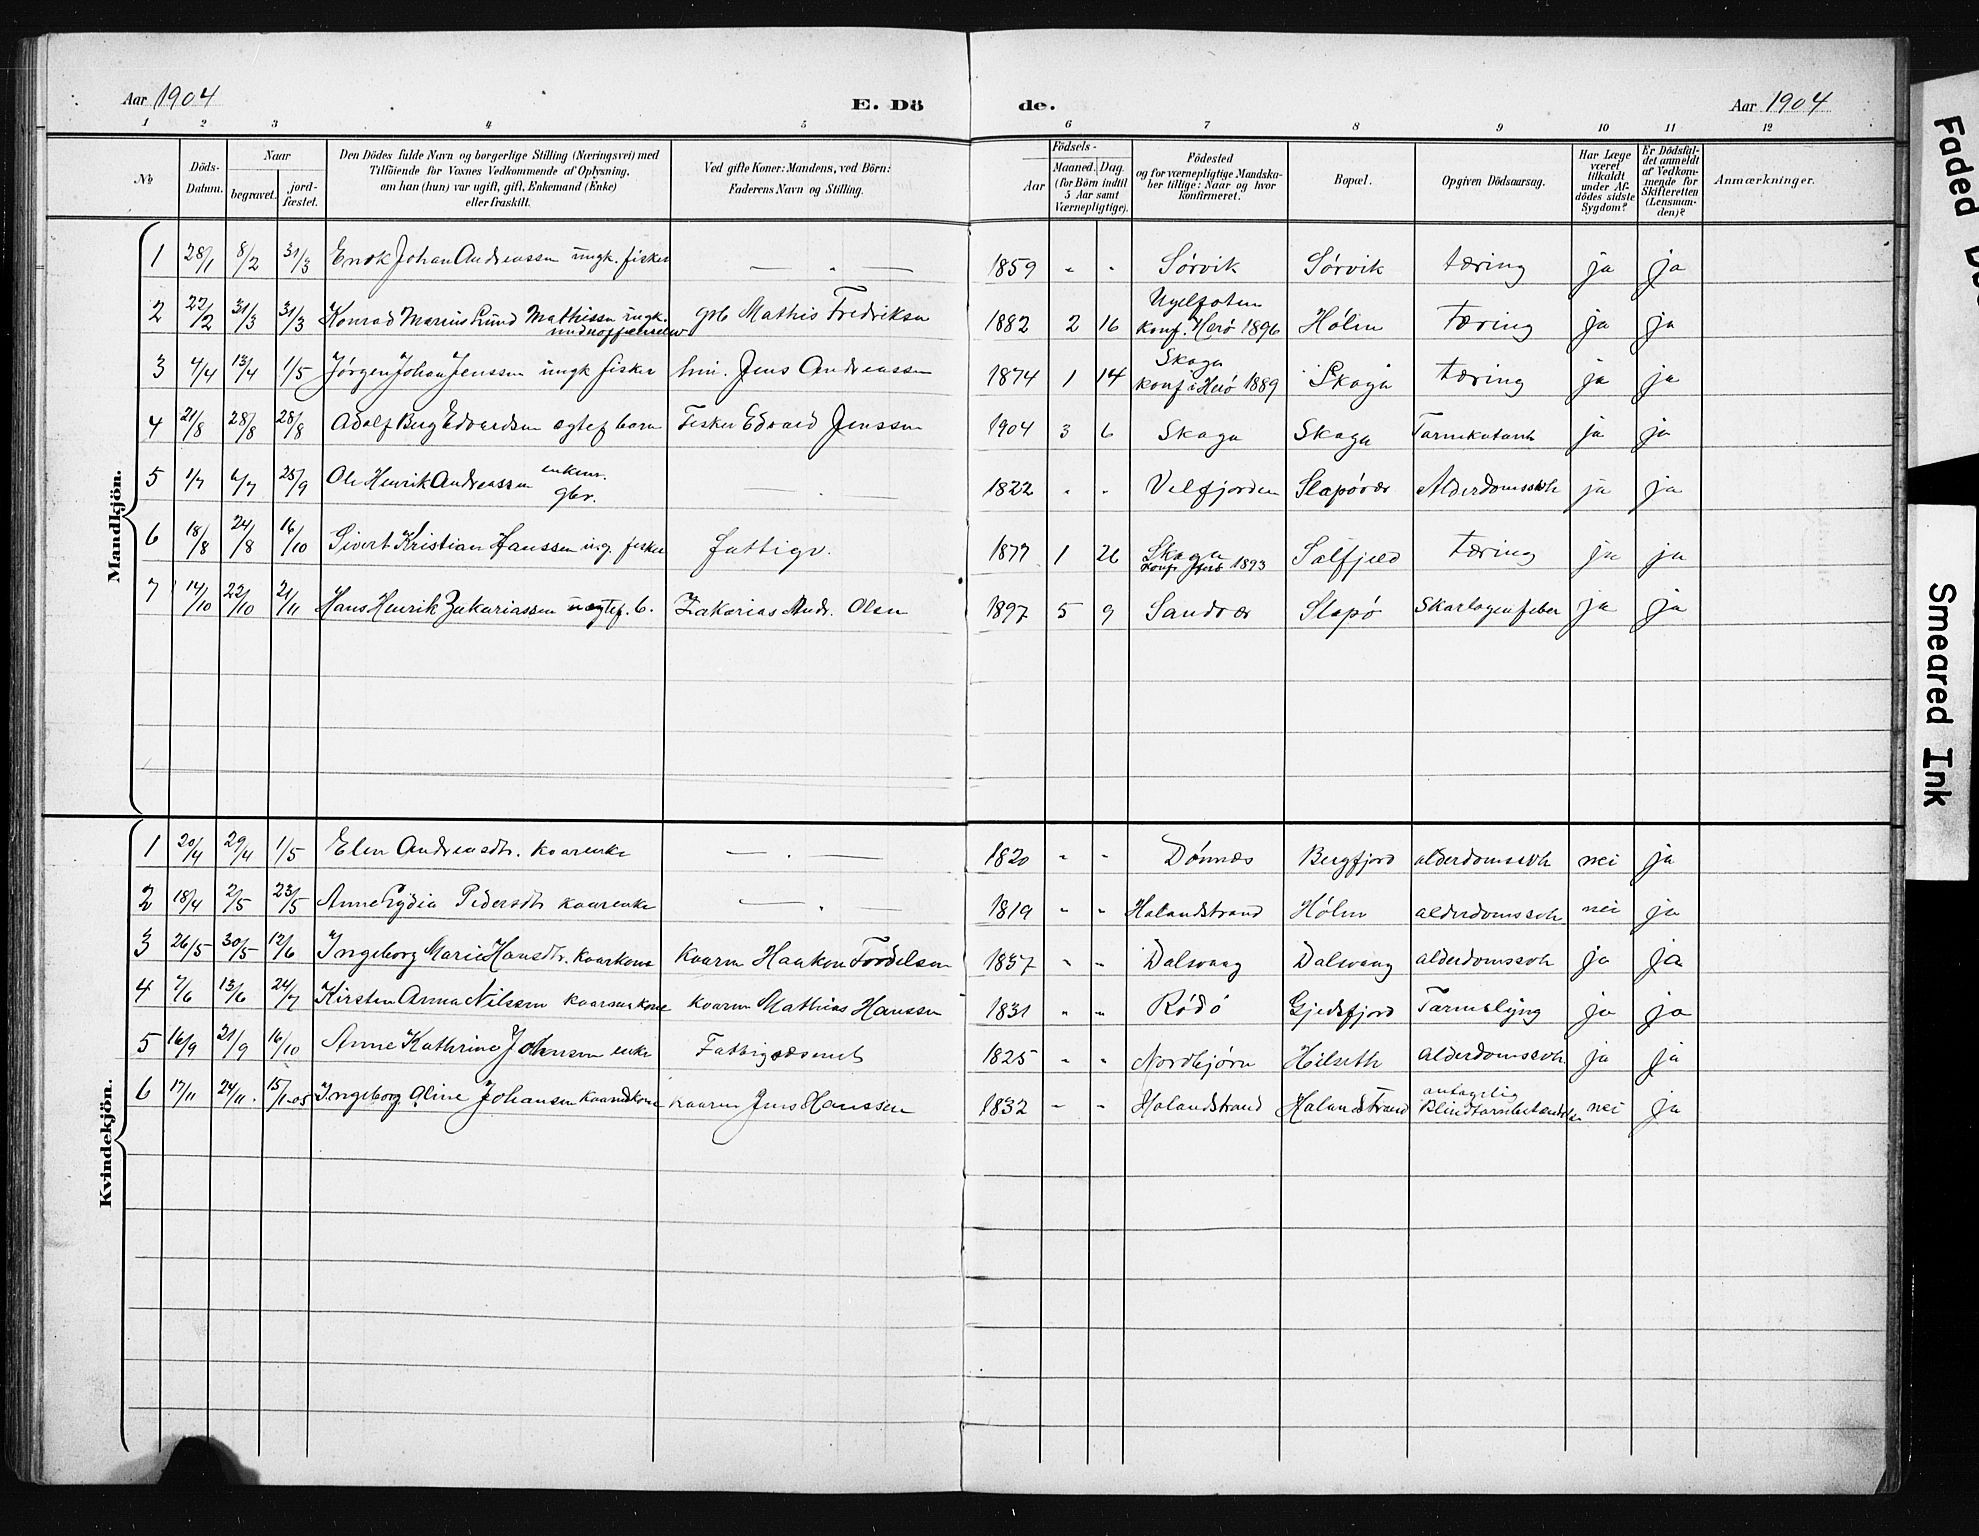 Aar 1904 E. Dö de. Aar 1904
1 2 3 4 5 6 7 8 9 10 11 12
№ Döds-Datum. Naar begravet. jord-fæstet.
Den Dödes fulde Navn og borgerlige Stilling (Næringsvei) med
Tilföiende for Voxnes Vedkommende af Oplysning,
om han (hun) var ugift, gift, Enkemand (Enke)
eller fraskilt.
Ved gifte Koner: Mandens, ved Börn:
Faderens Navn og Stilling.
Födsels-
Aar Maaned. Dag.
(for Börn indtil
5 Aar samt
Værnepligtige).
Födested
og for værnepligtige Mandska-
ber tillige: Naar og hvor
konfirmeret.
Bopæl.
Opgiven Dödsaarsag.
Har Læge
været
tilkaldt
under Af-
dödes sidste
Sygdom?
Er Dödsfal-
det anmeldt
af Vedkom-
mende for
Skifteretten
(Lensman-
den)?
Anmærkninger.
Mandkjön.
1 28/1 8/2 31/3 Enok Johan Andreassen ungk. fisker — " — 1859 " " Sørvik Sørvik tæring ja ja
2 22/2 31/3 31/3 Konrad Marius Lund Mathissen ungk. gbr Mathis Fredriksen 1882 2 16 konf. Herø 1896 Holm Tæring ja ja
3 4/4 13/4 1/5 Jørgen Johan Jenssen ungk fisker Jens Andreassen 1874 1 14 Skaga konf i Herø 1889 Skaga tæring ja ja
4 21/8 28/8 28/8 Adolf Berg Edvardsen egtef barn Fisker Edvard Jenssen 1904 3 6 Skaga Skaga Tarmkatarrh ja ja
5 1/7 6/7 25/9 Ole Henrik Andreassen enkem. gbr. — . — 1822 " " Velfjorden Slapøvær Alderdomssvh ja ja
6 18/8 24/8 16/10 Sivert Kristian Hanssen ug. fisker fattigv. 1877 1 26 Skaga konf. 1893 Salfjeld tæring ja ja
7 14/10 23/10 21/11 Hans Henrik Zakariassen uegtef. b. Zakarias Andr. Olsen 1897 5 9 Sandvær Slapø Skarlagenfeber ja ja
Kvindekjön.
1 20/4 29/4 1/5 Elen Andreasdtr. kaarenke — . — 1820 " " Dønnæs Bergfjord alderdomssvh nei ja
2 18/4 2/5 23/5 Anne Lydia Pedersdtr kaarenke — " — 1819 " " Halandstrand Holm alderdomssvh nei ja
3 26/5 30/5 12/6 Ingeborg Marie Hansdtr. kaarkone kaarm Haakon Tordelsen 1837 " " Dalsvaag Dalsvaag alderdomssvh ja ja
4 7/6 13/6 24/7 Kirsten Anna Nilssen kaarmkone kaarm Mathias Hanssen 1831 " " Rødø Gjedsfjord Tarmslyng ja ja
5 16/9 21/9 16/10 Anne Kathrine Johnsen enke Fattigvæsenet 1825 " " Nordbjørn Hilseth alderdomssvh ja ja
6 17/11 24/11. 15/1-05 Ingeborg Oline Johansen kaarmdkone kaarm Jens Hanssen 1832 " " Halandstrand Halandstrand antagelig nei ja
Faded
Smeared Ink